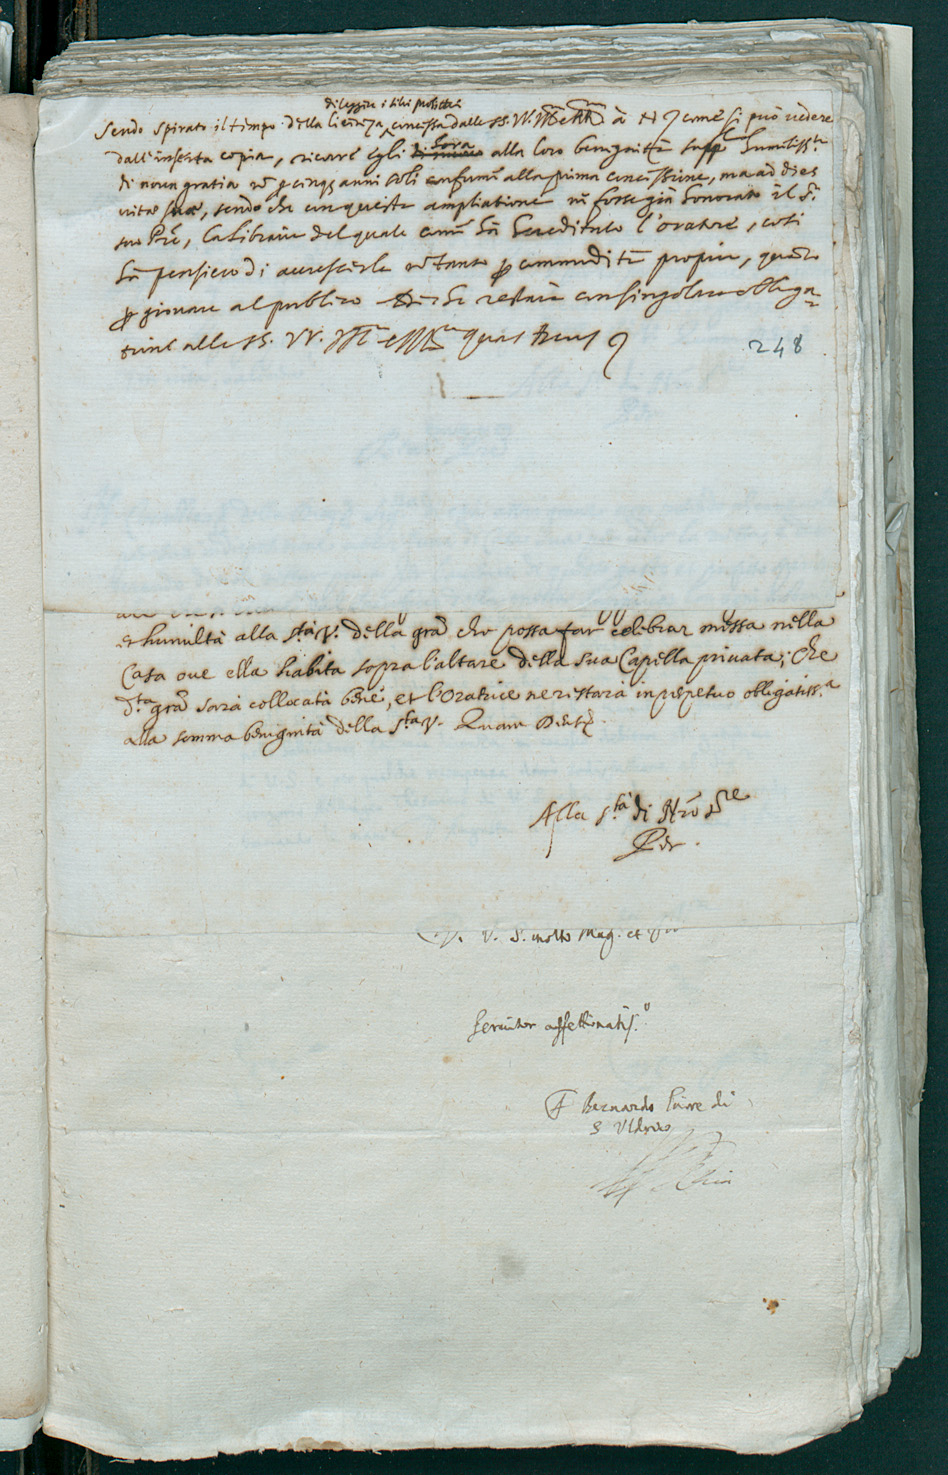 di leggere i libri prohibiti
Sendo spirato il tempo della licenza, concessa dalle SS. VV. Ill.me à N come si può vedere
dall'inserta copia, ricorre egli hora alla loro benignità supp.do humiliss.te
di nova gratia nō p cinq; anni soli conforme alla prima concessione, ma ad dies
vitae suae, sendo che con questa ampliatione nē fosse già honorato il S.r
suo P̄re, la libraria del quale come hà hereditato l'oratore, così
hà pensiero di accrescerla nō tanto p commodità propria, quanto
p giovare al publico et le restarà con singolare obliga
tione alle SS. VV. Ill.me Quas Deus
248
et humiltà alla S.tà V. della grā che possa far celebrar messa nella
Casa oue ella habita sopra l'altare della sua Capella priuata; Che
d.ta grā sarà collocata bene, et l'Oratrice ne restarà in perpetuo obligatiss.a
alla somma benignità della S.tà V. Quam Deus
Alla S.tà di Nrō S.re
Per
V. S. molto Mag. et
Seruitor affettionatis.o
F Bernardo Priore di
S Uldrico